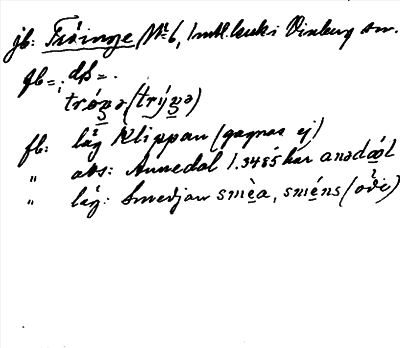 jb: Tröinge No 6, 1 mtl. beuki Vinberg sn.
gb=; dß=.
trǿŋə (trýŋə)
fb: läg Klippan (gagnas ej)
" abs: Annedal 1.3485 har anədœ̀l
" läg: Smedjan smèa, sméns (